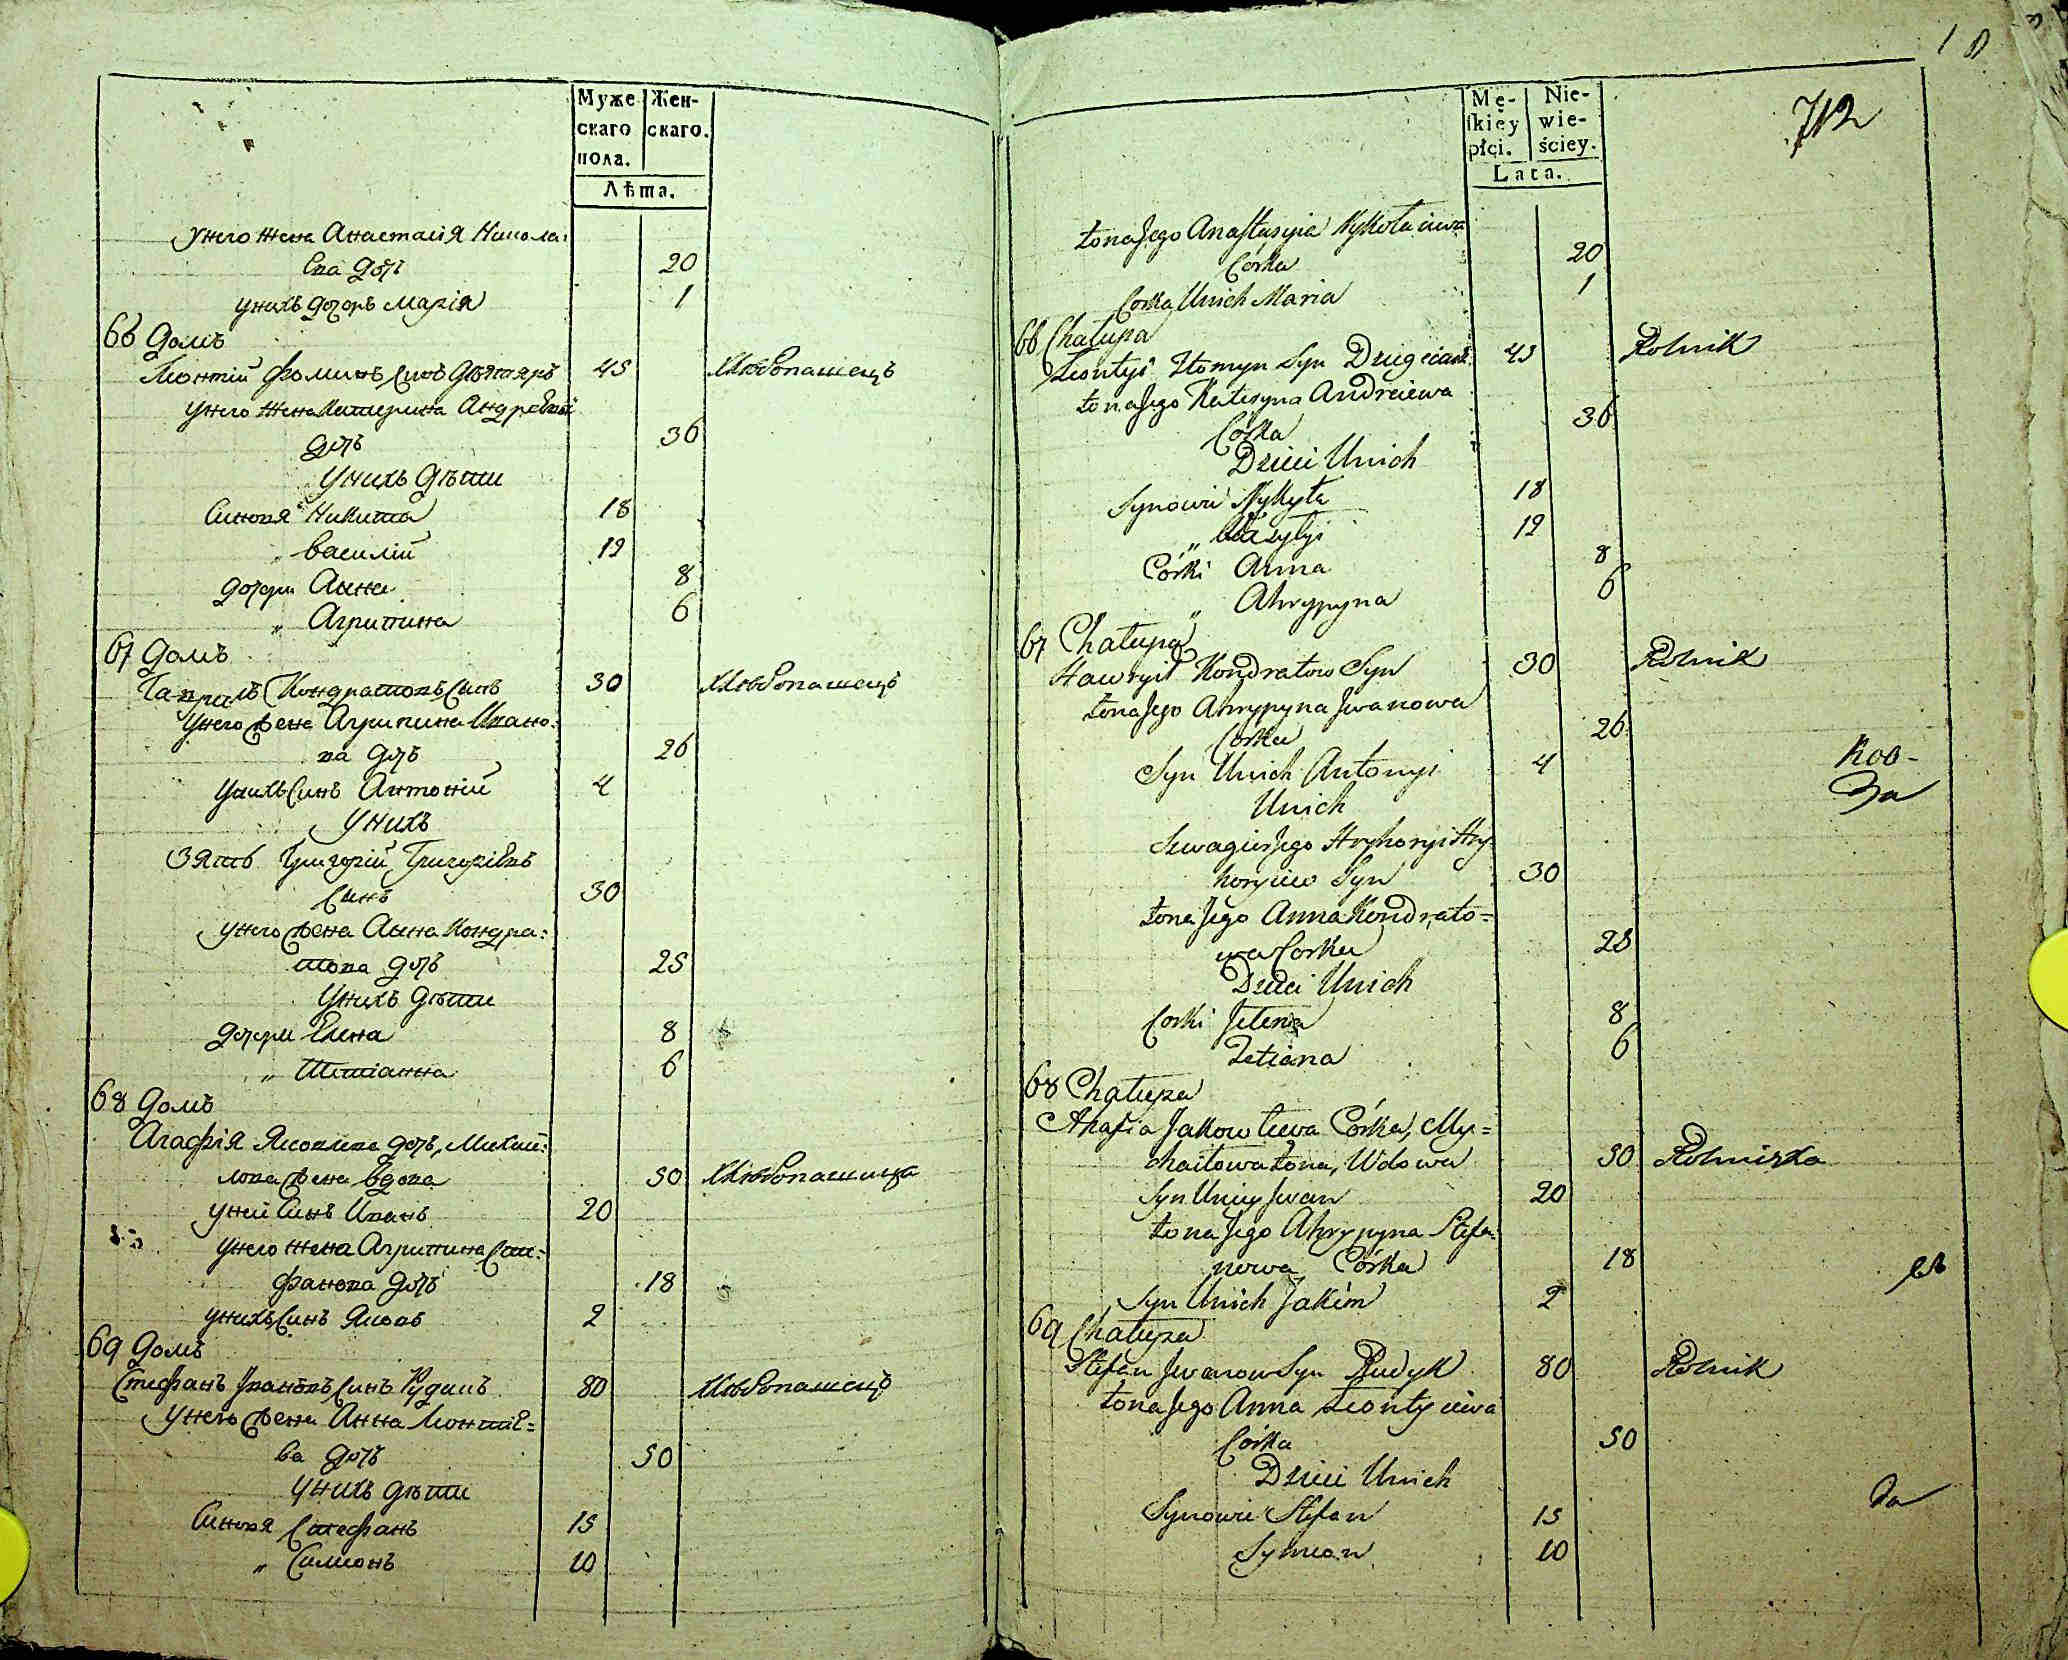 Муже Жен-
скаго скаго.
пола.
Лѣта.
унего жена Анастасія Никола:
ева дочь 20
унихъ дочерь Марія 1
66 домъ
Леонтій Фоминъ синъ 45 Хлѣбопашецъ
унего жена Катерина Андреева
дочь 36
унихъ дѣти
Синовя Никита 18
„ Василій 12
дочери Анна 8
„ Агрипина 6
67 домъ
Гаврилъ Кондратовъ синъ 30 Хлѣбопашецъ
унего жена Агрипина Ивано:
ва дочь 26
унихъ синъ Антоній 4
унихъ
Зять Григорій Григоріевъ
синъ 30
унего жена Анна Кондра:
това дочь 25
унихъ дѣти
дочери Елена 8
„ Татіанна 6
68 домъ
Агафія Яковлева дочь, Михай:
лова жена вдова 50 Хлѣбопашица
уней синъ Иванъ 20
унего жена Агрипина Сте:
фанова дочь 18
унихъ синъ Якимъ 2
69 домъ
Стефанъ Ивановъ синъ Рудикъ 80 Хлѣбопашецъ
унего жена Анна Леонтіе=
ва дочь 50
унихъ дѣти
Синовя Стефанъ 15
„ Симеонъ 10
Mę- Nie-
ſkiey wie-
płci. ściey.
Lata.
712
żona Jego Anastasyia Nykołaiewa
Córka 20
Corka Unich Maria 1
66 Chałupa
Leontyi Homyn Syn 45 Rolnik
żona Jego Kateryna Andreiewa
Córka 36
Dzieci Unich
Synowie Nykyta 18
„ Wasylyi 12
Córki Anna 8
„ Ahrypyna 6
67 Chałupa
Hawryił Kondratow Syn 30 Rolnik
żona Jego Ahrypyna Jwanowa
Córka 26
Syn Unich Antonyi 4
Unich
Szwagier Jego Hryhoryi Hry-
horyiew Syn 30
żona Jego Anna Kondrato=
wa Corka 25
Dzieci Unich
Corki Jełena 8
Tetiana 6
68 Chałupa
Ahafia Jakowlewa Córka, My=
chaiłowa żona, Wdowa 50 Rolniczka
Syn Uniey Jwan 20
żona Jego Ahrypyna Stefa:
nowa Córka 18
Syn Unich Jakim 2
69 Chałupa
Stefan Jwanow Syn Rudyk 80 Rolnik
żona Jego Anna Leontyiewa
Córka 50
Dzieci Unich
Synowie Stefan 15
Symeon 10